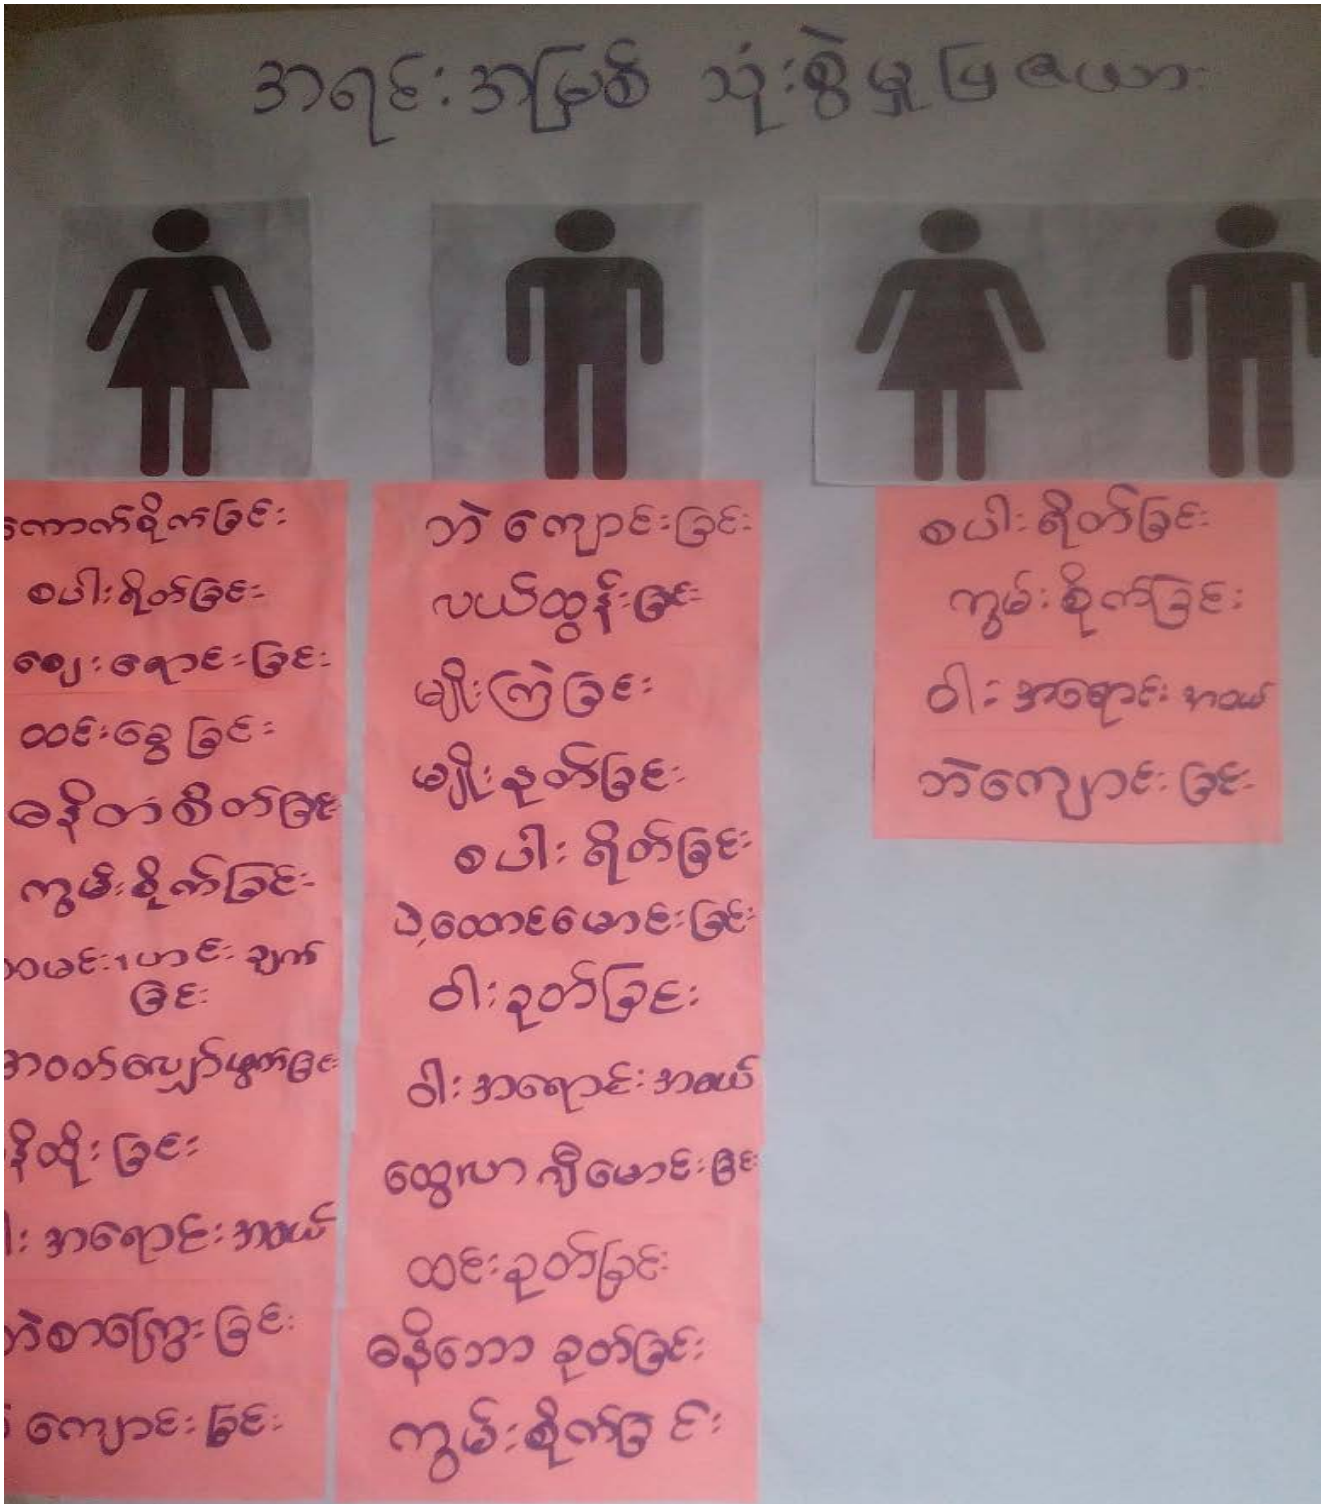 အရင်းအမြစ် သုံးစွဲမှုပြဇယား
ကောက်စိုက်ခြင်း
စပါးရိတ်ခြင်း
ဈေးရောင်းခြင်း
ထင်းခွေခြင်း
ဓနိတံစိတ်ခြင်း
ကွမ်းစိုက်ခြင်း
ထမင်း၊ဟင်းချက်
ခြင်း
အဝတ်လျှော်ဖွတ်ခြင်း
နိထိုးခြင်း
အရောင်းအဝယ်
ဘဲစာကြွေးခြင်း
ကျောင်းခြင်း
ဘဲကျောင်းခြင်း
လယ်ထွန်ခြင်း
မျိုးကြဲခြင်း
မျိုးနုတ်ခြင်း
စပါးရိတ်ခြင်း
ပဲ့ထောင်မောင်းခြင်း
ဝါးခုတ်ခြင်း
ဝါးအရောင်းအဝယ်
ထွေလာဂျီမောင်းခြင်း
ထင်းခုတ်ခြင်း
ဓနိဘော ခုတ်ခြင်း
ကွမ်းစိုက်ခြင်း
စပါးရိတ်ခြင်း
ကွမ်းစိုက်ခြင်း
ဝါးအရောင်းအဝယ်
ဘဲကျောင်းခြင်း